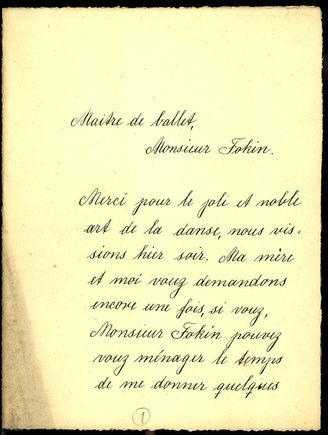 Maitre de ballet,
Monsieur Fokin.
Merci pour le joli et noble
art de la danse, nous vis-
sions hier soir. Ma mère
et moi vouz demandons
encore une fois, si vouz,
Monsieur Fokin pouvez
vouz ménager le temps
de me donner quelques
1